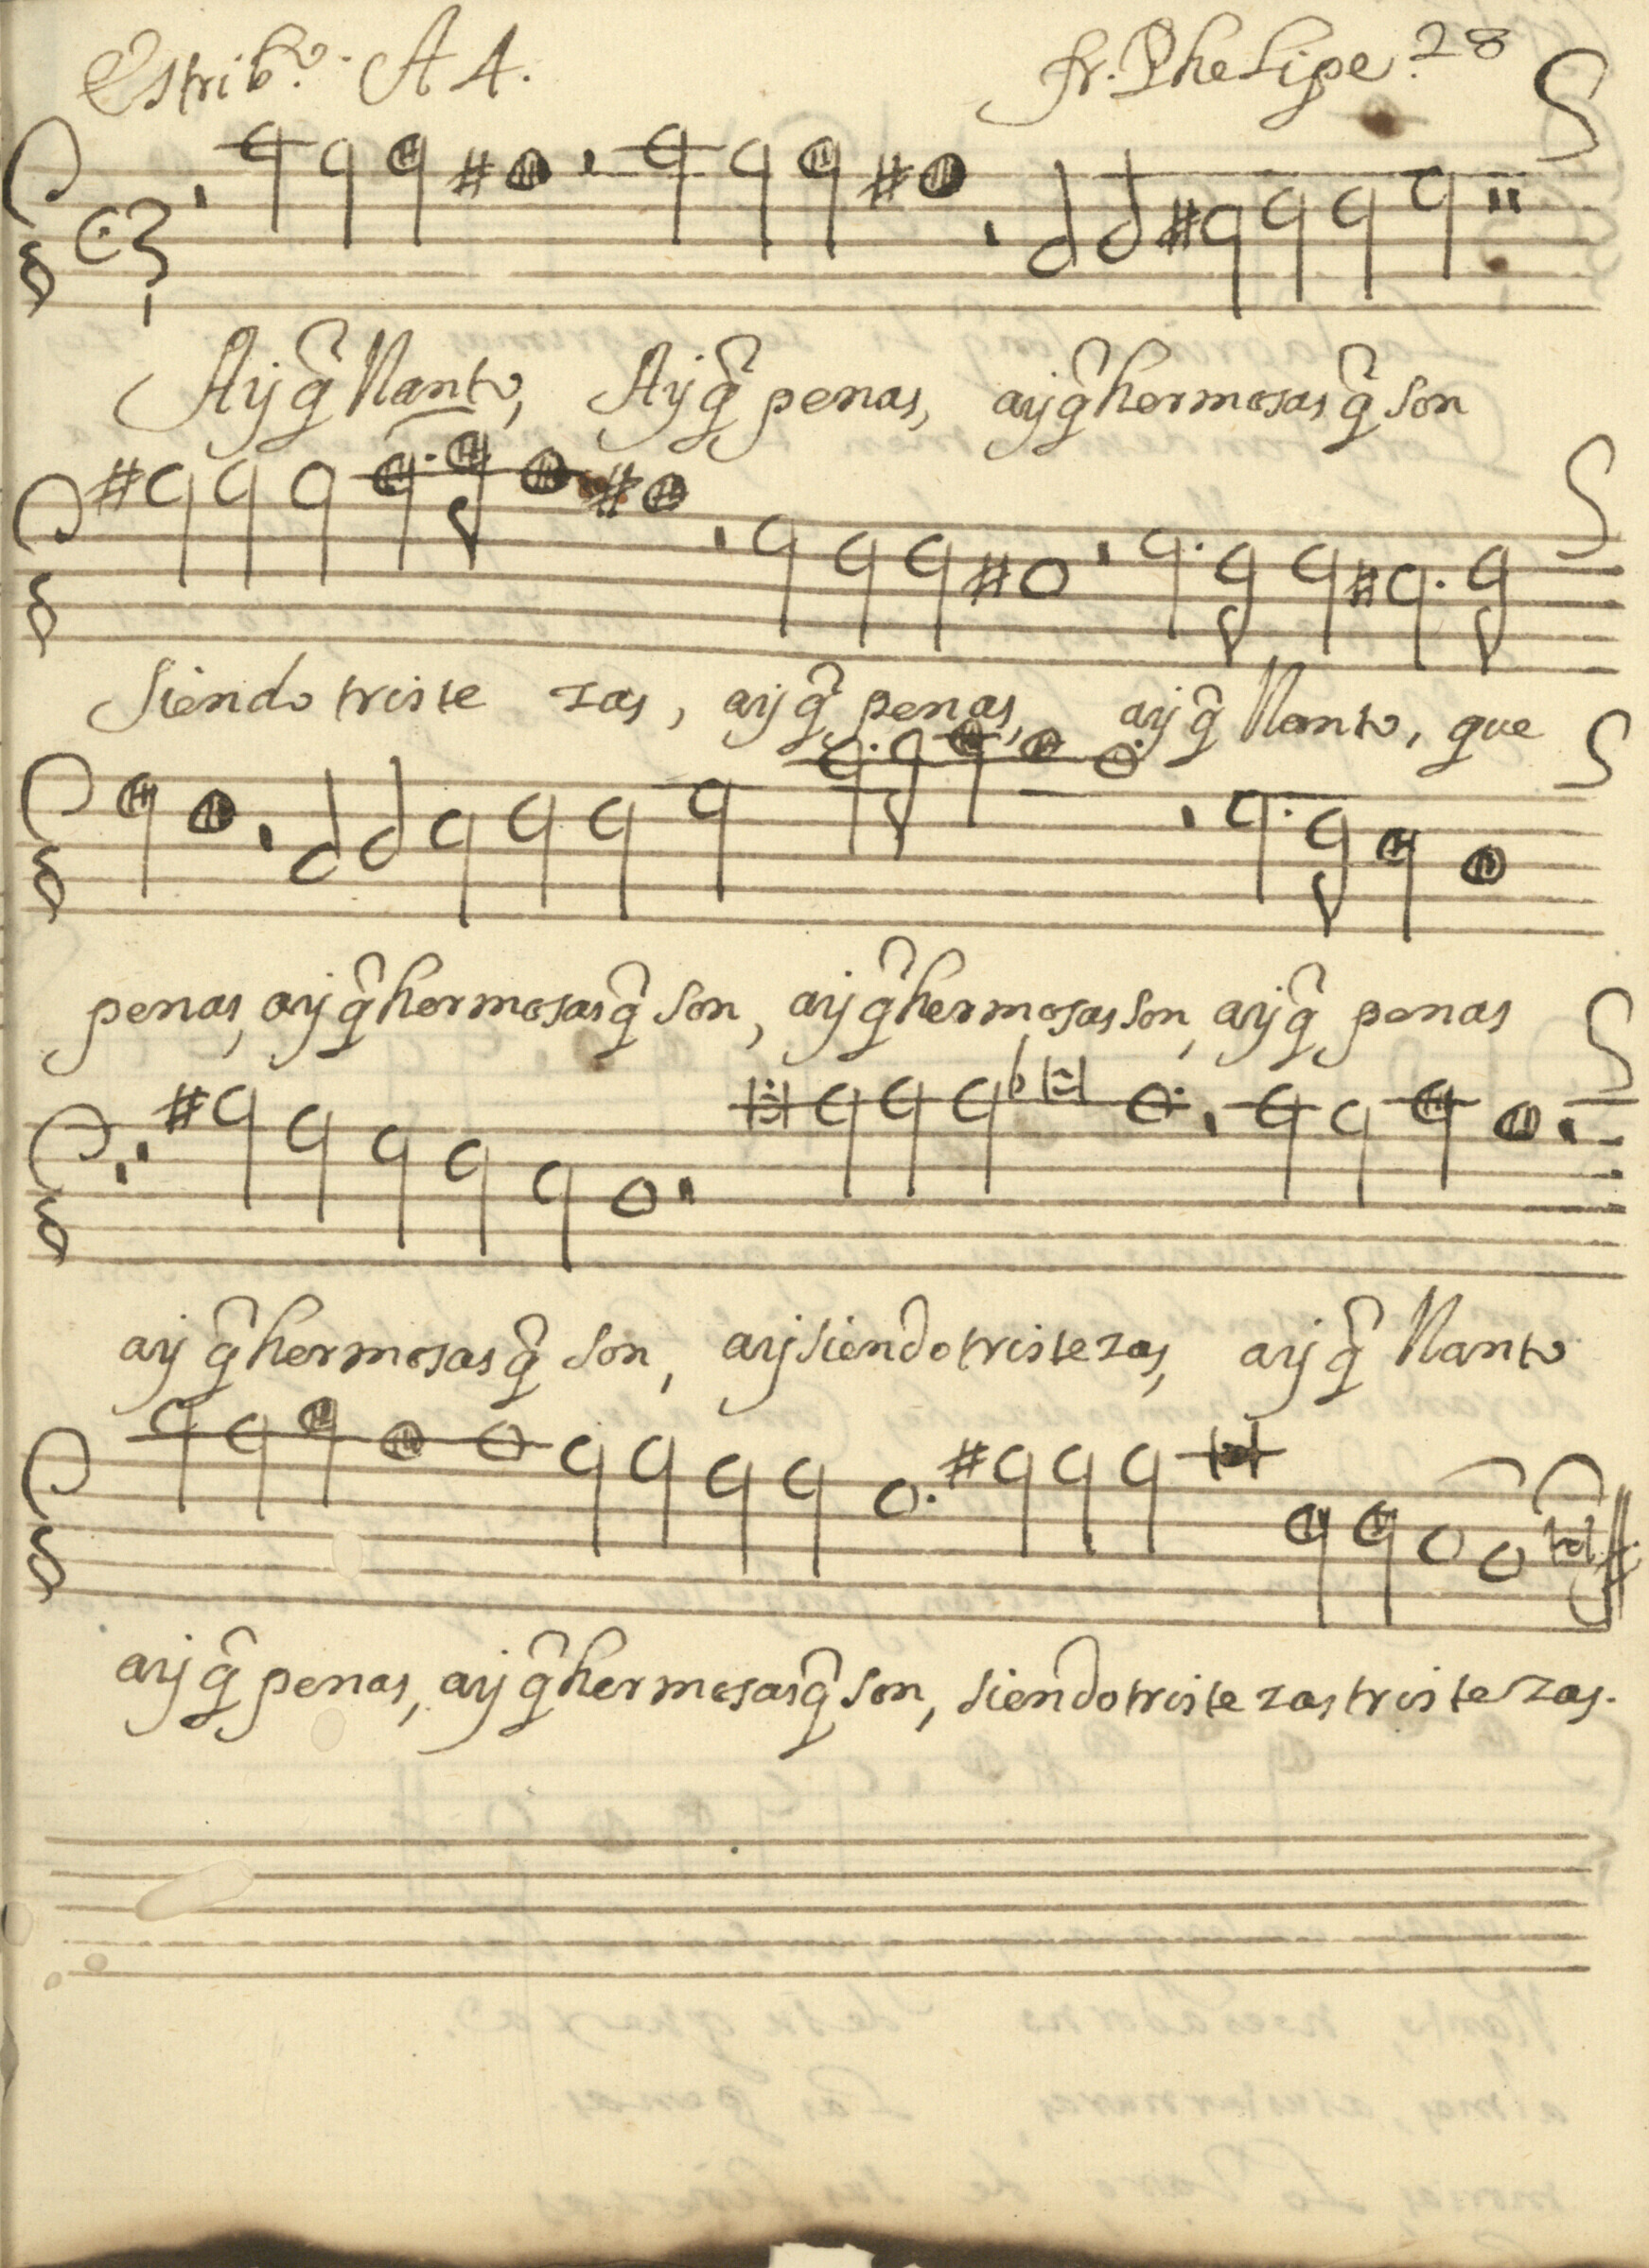 Estribo. A 4. fr. Phelipe. 28
Ay q̃ llanto, Ay q̃ penas, ay q̃ hermosas q̃ son
siendo triste zas, ay q̃ penas, ay q̃ llanto, que
penas, ay q̃ hermosas q̃ son, ay q̃ hermosas son, ay q̃ penas
ay q̃ hermosas q̃ son, ay siendo tristezas, ay q̃ llanto
ay q̃ penas, ay q̃ hermosas q̃ son, siendo triste zas triste zas.